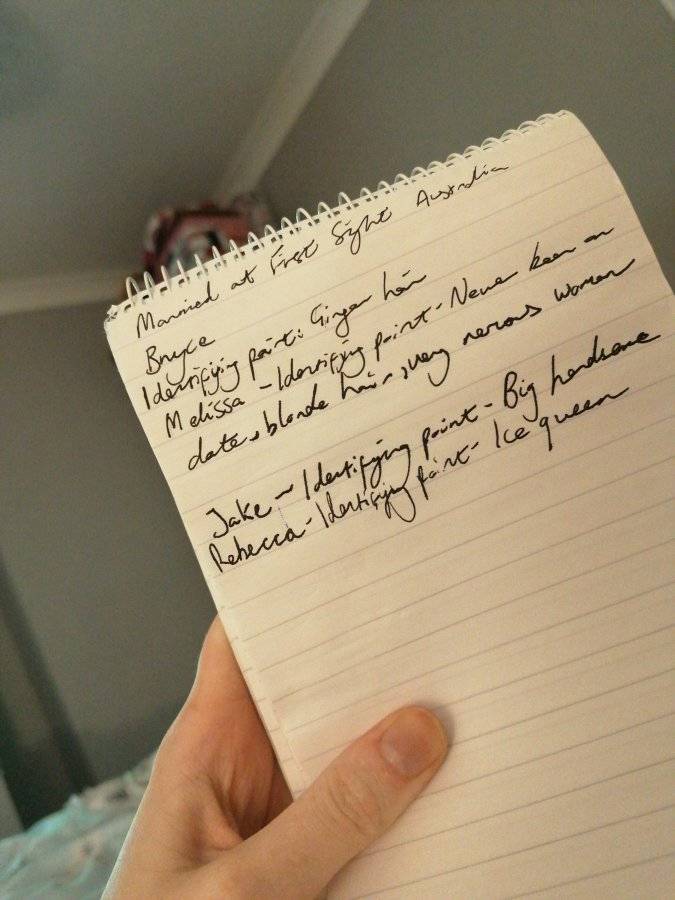 Married at First Sight Australia
Bryce
Identifying point: Ginger hair
Melissa - Identifying point - Never been on
date, blonde hair, very nervous woman
Jake - Identifying point - Big handsome
Rebecca - Identifying point - Ice queen